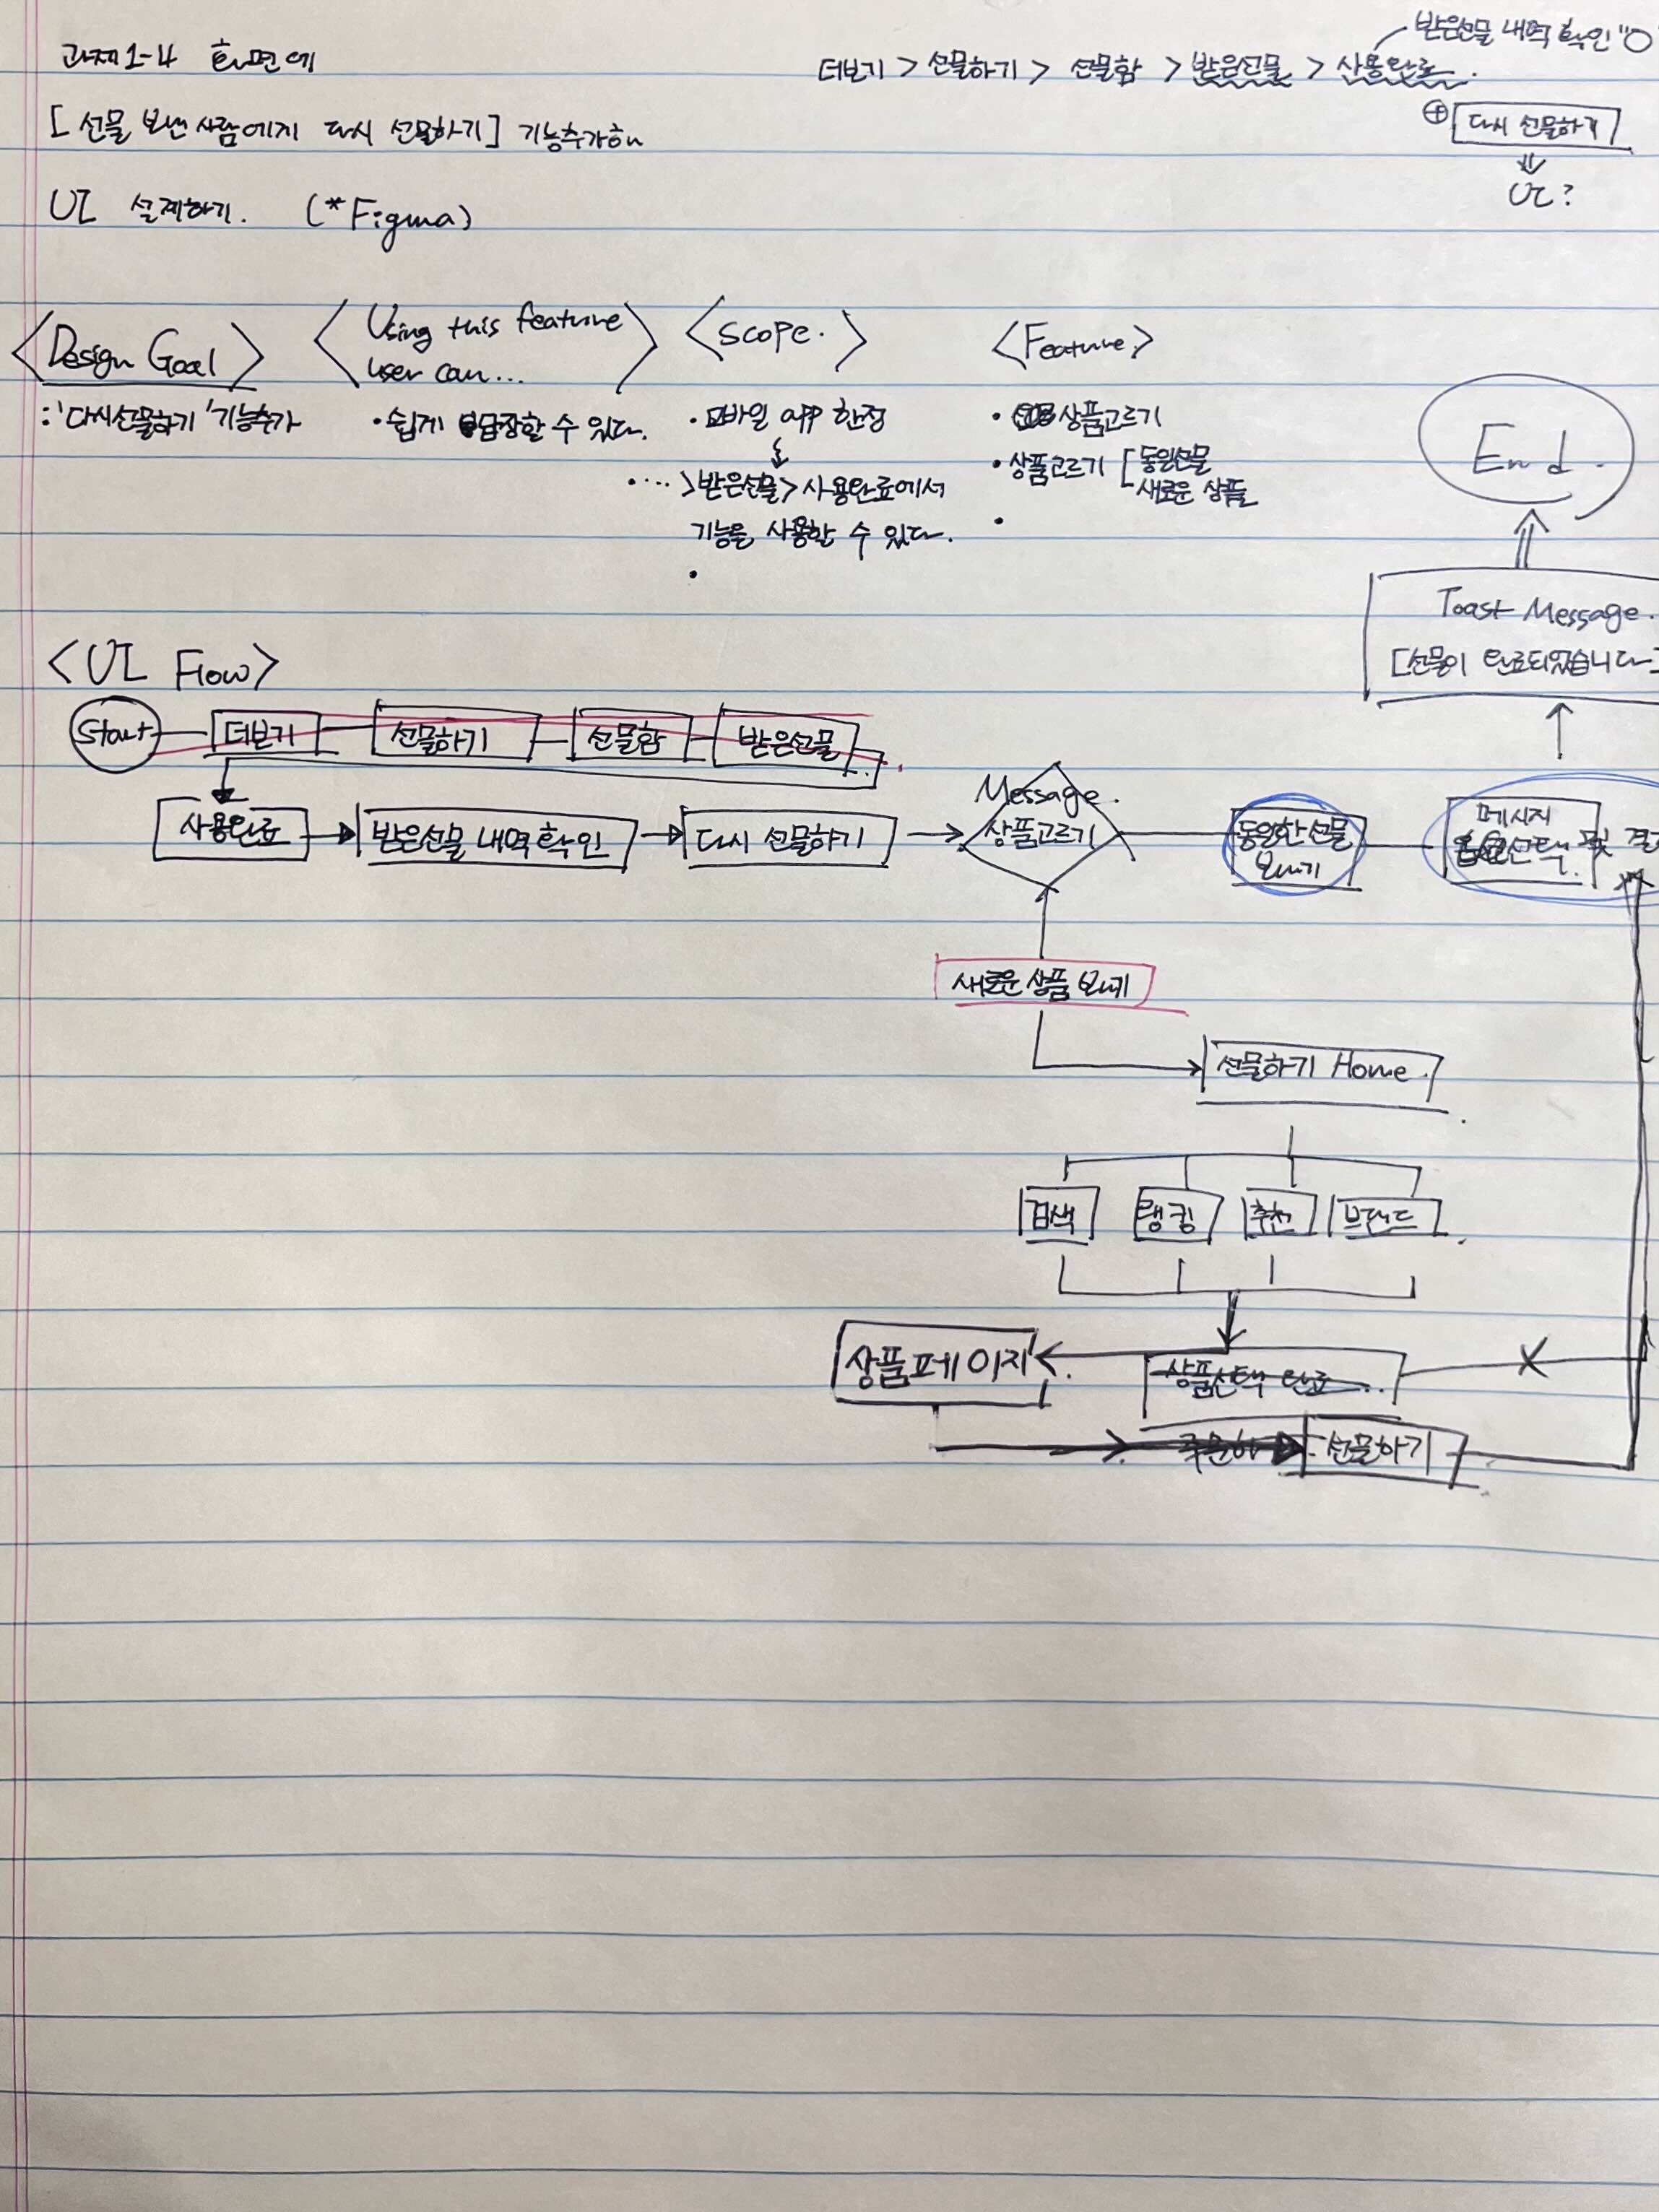 과제1-4 화면에
[선물 보낸 사람에게 다시 선물하기] 기능추가한
UI 설계하기. (*Figma)
받은선물 내역 확인 "O"
더보기 > 선물하기 > 선물함 > 받은선물 > 사용완료.
⊕ 다시 선물하기
UI?
<Design Goal>
: '다시선물하기' 기능추가
<Using this feature
user can...>
• 쉽게 답장할 수 있다.
<Scope.>
• 모바일 app 한정
• ... > 받은선물 > 사용완료에서
기능을 사용할 수 있다.
•
<Feature.>
• 상품고르기
• 상품고르기 [ 동일선물
새로운 상품
•
End.
Toast Message.
[선물이 완료되었습니다]
<UI Flow>
Start 더보기 선물하기 선물함 받은선물
사용완료 받은선물 내역 확인 다시 선물하기
Message.
상품고르기
동일한 선물
보내기
메시지
선택 및 결
새로운 상품 보내기
선물하기 Home.
검색 랭킹 추천 브랜드
상품페이지
상품선택 완료..
주문하 선물하기